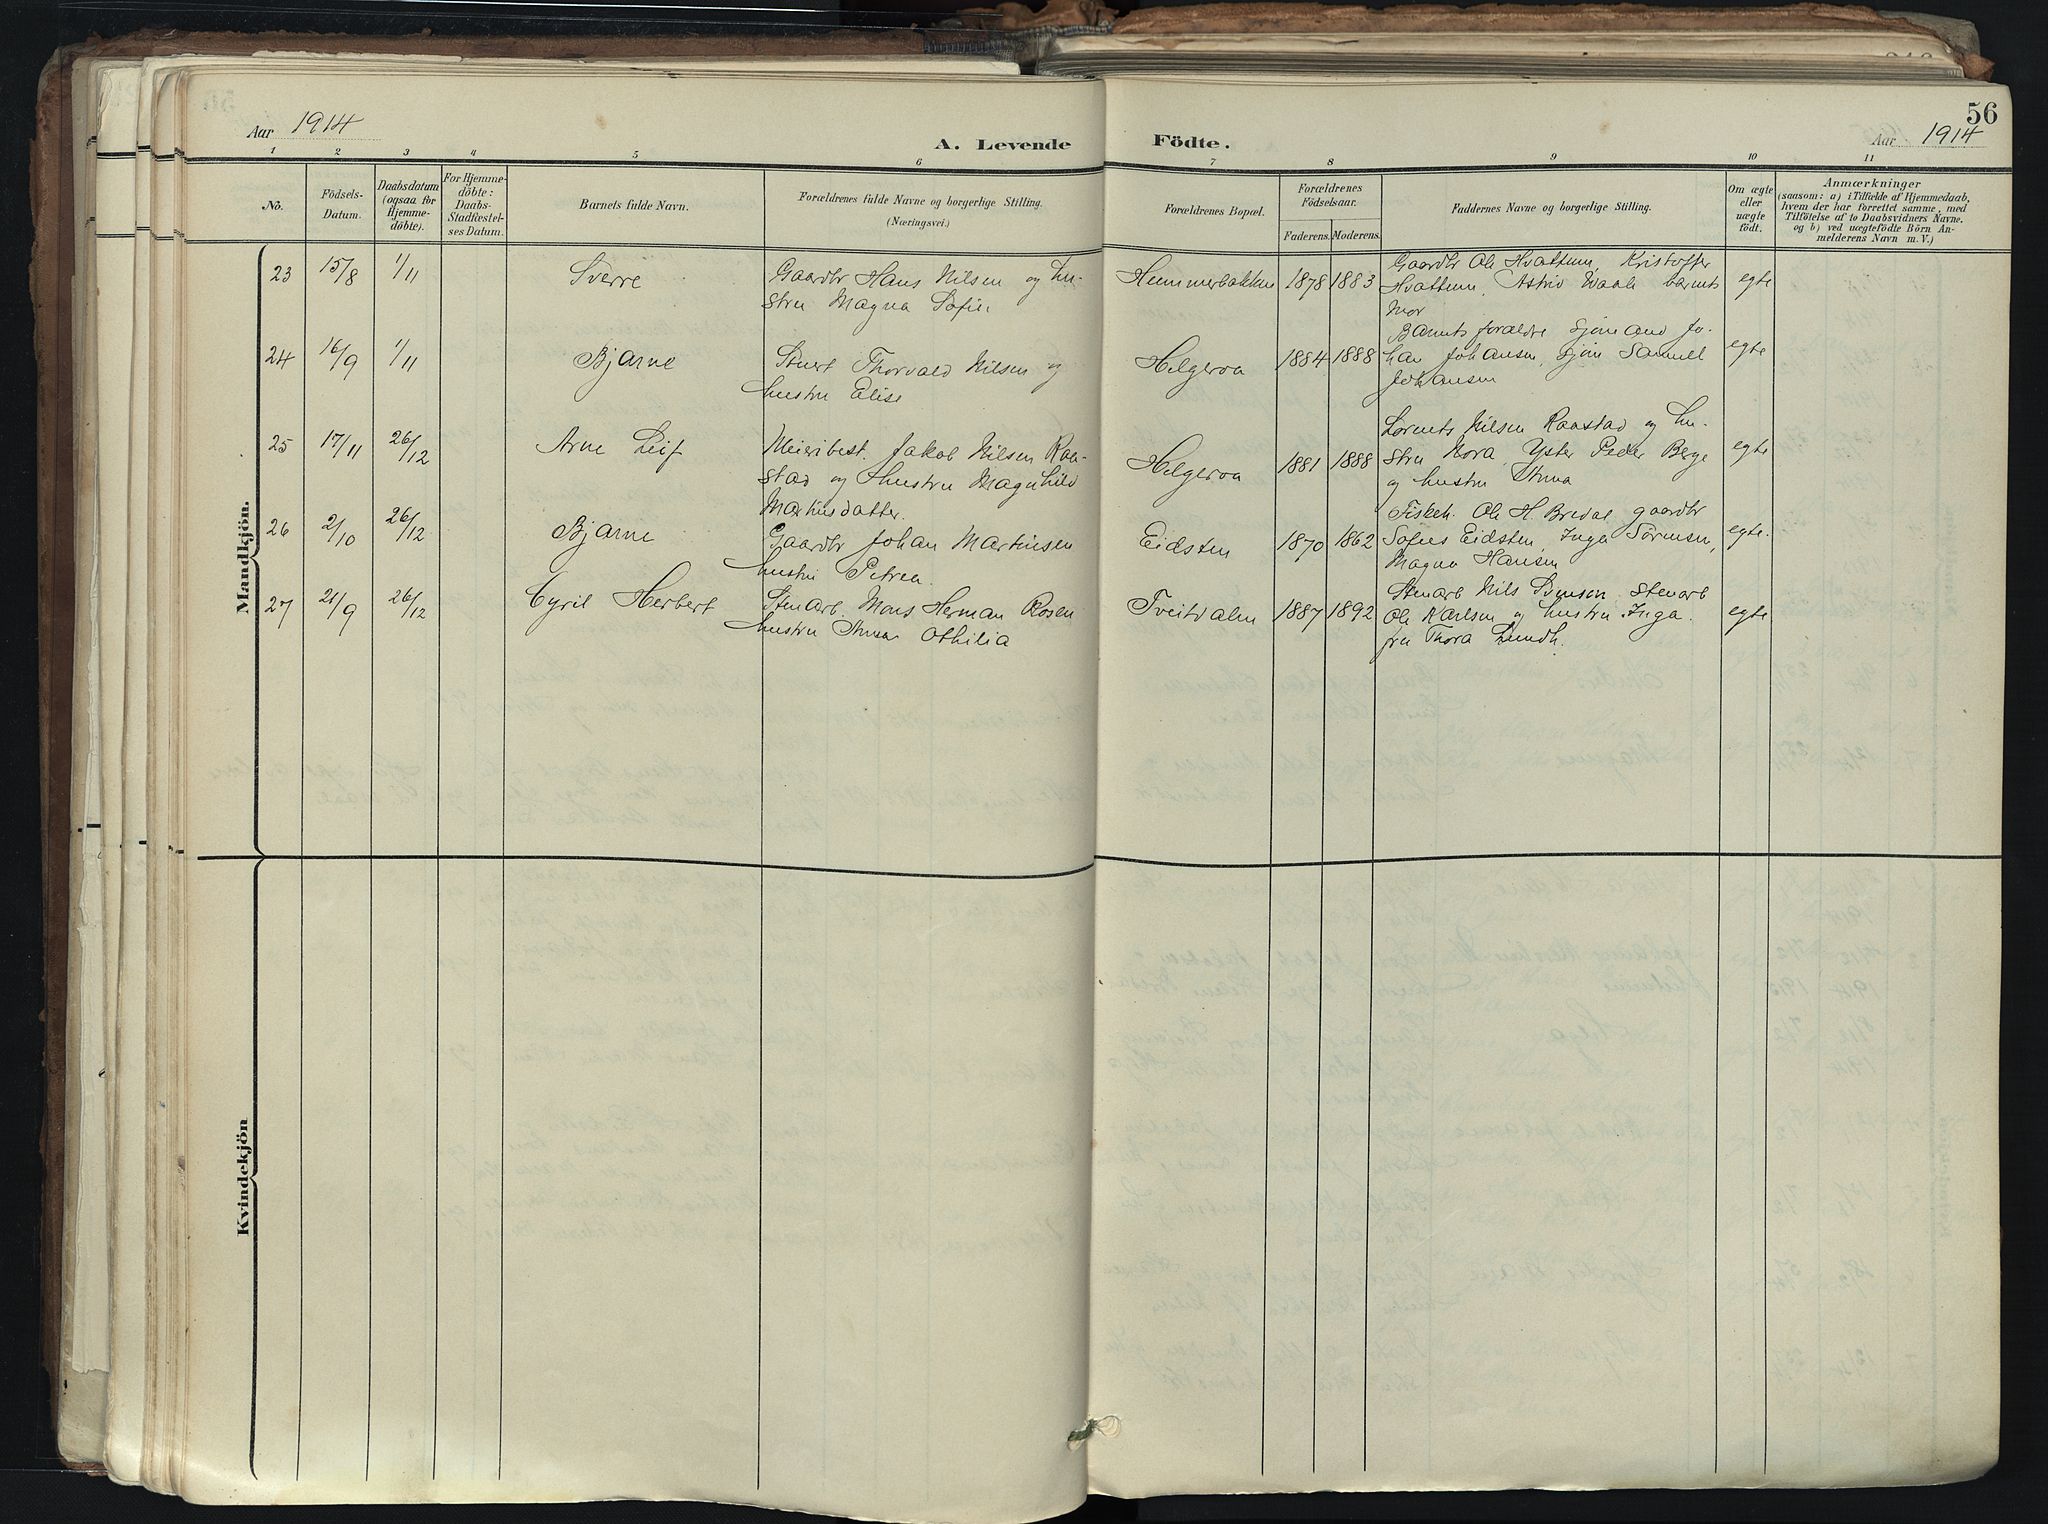 56
Aar 1914
A. Levende Födte.
Aar 1914
1 2 3 4 5 6 7 8 9 10 11
No.
Födsels-
Datum.
Daabsdatum
(ogsaa for
Hjemme-
döbte).
For Hjemme-
döbte:
Daabs-
Stadfestel-
ses Datum.
Barnets fulde Navn.
Forældrenes fulde Navne og borgerlige Stilling.
(Næringsvei.)
Forældrenes Bopæl.
Forældrenes
Födselsaar.
Faderens. Moderens.
Faddernes Navne og borgerlige Stilling.
Om ægte
eller
uægte
født.
Anmærkninger
(saasom: a) i Tilfælde af Hjemmedaab,
hvem der har forrettet samme, med
Tilföielse af to Daabsvidners Navne.
og b) ved uægtefödte Börn An-
melderens Navn m. V.)
Mandkjön.
23 15/8 1/11 Sverre
Gaardbr Hans Nilsen og hu-
stru Magna Sofie.
Hummerbakken 1878 1883
Gaardbr Ole Hvattum, Kristoffer
Hvattum, Astrid Waale barnets
mor
egte
24 16/9 1/11 Bjarne
Stuert Thorvald Nilsen og
hustru Elise
Helgeroa 1884 1888
Barnets forældre, sjömand Jo-
han Johansen, sjöm Samuel
Johansen
egte
25 17/11 26/12 Arne Leif
Meieribest. Jakob Nilsen Raa-
stad og Hustru Magnhild
Martinsdatter.
Helgeroa 1881 1888
Lorents Nilsen Raastad og hu-
stru Nora, Yster Peder Berge
og hustru Anna
egte
26 2/10 26/12 Bjarne
Gaardbr Johan Martinsen
hustru Petrea.
Eidsten 1870 1862
Fiskeh. Ole H. Bredal gaardbr
Sofus Eidsten, Inga Sörensen,
Magna Hansen
egte.
27 21/9 26/12 Cyril Herbert
Stenarb. Mons Herman Rosen
hustru Anna Othilia
Tveitdalen 1887 1892
Stenarb Nils Svenson, stenarb
Ole Karlsen og hustru Inga.
fru Thora Lundh.
egte
Kvindekjön